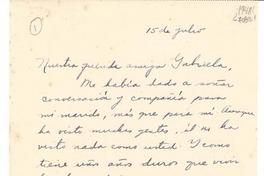 1
15 de julio
Nuestra querida amiga Gabriela,
Me había dado a soñar
conversación y compañía para
mi marido, más que para mí. Aunque
ha visto muchas gentes, él no ha
visto nada como usted. Y como
tiene unos años duros que vivir